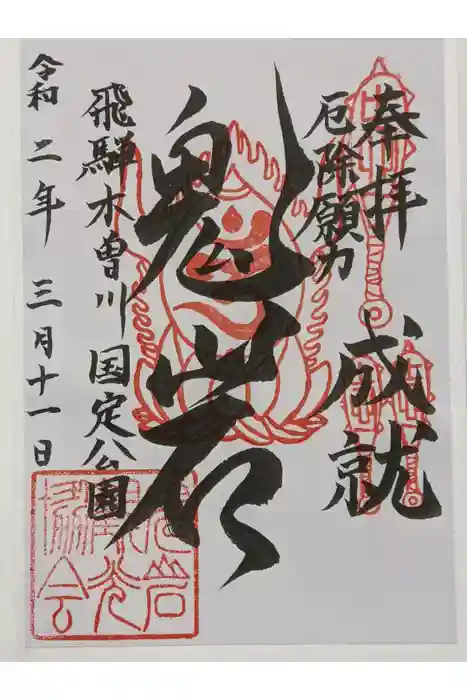 奉拝
厄除願力
成就
鬼岩
飛騨木曽川国定公園
令和二年三月十一日
鬼岩
観光
協会